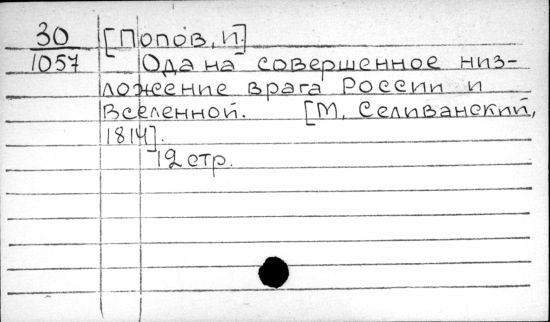 30 [Попов, И.]
1057 Ода на совершенное низ-
ложение врага России и
Вселенной. [М, Селиванский,
1814].
12 стр.